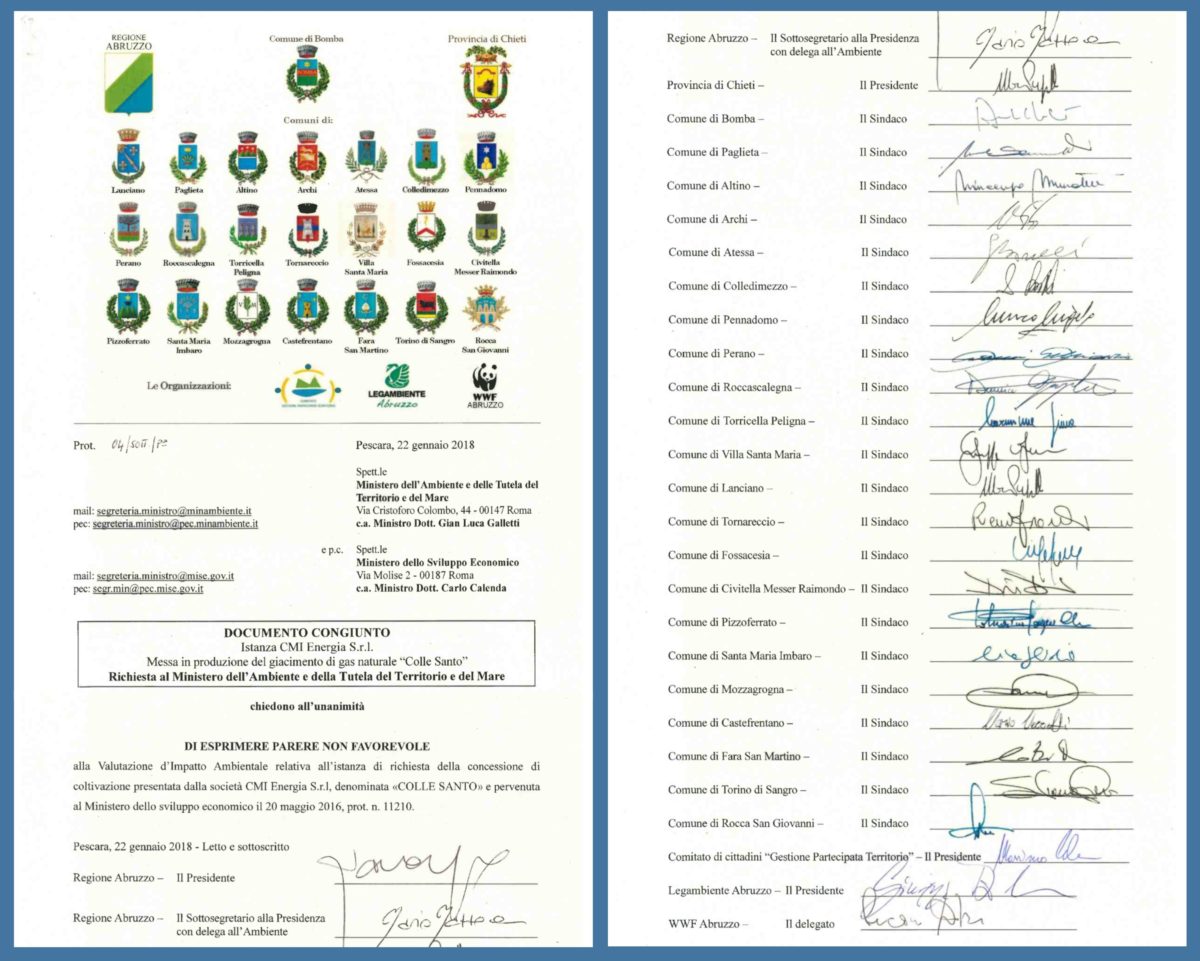 REGIONE
ABRUZZO
Comune di Bomba
Provincia di Chieti
Comuni di:
Lanciano
Paglieta
Altino
Archi
Atessa
Colledimezzo
Pennadomo
Perano
Roccascalegna
Torricella
Peligna
Tornareccio
Villa
Santa Maria
Fossacesia
Civitella
Messer Raimondo
Pizzoferrato
Santa Maria
Imbaro
Mozzagrogna
Castefrentano
Fara
San Martino
Torino di Sangro
Rocca
San Giovanni
Le Organizzazioni:
LEGAMBIENTE
Abruzzo
WWF
ABRUZZO
Prot. 04/SOTT/PE
Pescara, 22 gennaio 2018
Spett.le
Ministero dell'Ambiente e delle Tutela del
Territorio e del Mare
mail: segreteria.ministro@minambiente.it Via Cristoforo Colombo, 44 - 00147 Roma
pec: segreteria.ministro@pec.minambiente.it c.a. Ministro Dott. Gian Luca Galletti
e p.c. Spett.le
Ministero dello Sviluppo Economico
mail: segreteria.ministro@mise.gov.it Via Molise 2 - 00187 Roma
pec: segr.min@pec.mise.gov.it c.a. Ministro Dott. Carlo Calenda
DOCUMENTO CONGIUNTO
Istanza CMI Energia S.r.l.
Messa in produzione del giacimento di gas naturale "Colle Santo"
Richiesta al Ministero dell'Ambiente e della Tutela del Territorio e del Mare
chiedono all'unanimità
DI ESPRIMERE PARERE NON FAVOREVOLE
alla Valutazione d'Impatto Ambientale relativa all'istanza di richiesta della concessione di
coltivazione presentata dalla società CMI Energia S.r.l, denominata «COLLE SANTO» e pervenuta
al Ministero dello sviluppo economico il 20 maggio 2016, prot. n. 11210.
Pescara, 22 gennaio 2018 - Letto e sottoscritto
Regione Abruzzo – Il Presidente
Regione Abruzzo – Il Sottosegretario alla Presidenza
con delega all'Ambiente
Regione Abruzzo – Il Sottosegretario alla Presidenza
con delega all'Ambiente
Provincia di Chieti – Il Presidente
Comune di Bomba – Il Sindaco
Comune di Paglieta – Il Sindaco
Comune di Altino – Il Sindaco
Comune di Archi – Il Sindaco
Comune di Atessa – Il Sindaco
Comune di Colledimezzo – Il Sindaco
Comune di Pennadomo – Il Sindaco
Comune di Perano – Il Sindaco
Comune di Roccascalegna – Il Sindaco
Comune di Torricella Peligna – Il Sindaco
Comune di Villa Santa Maria – Il Sindaco
Comune di Lanciano – Il Sindaco
Comune di Tornareccio – Il Sindaco
Comune di Fossacesia – Il Sindaco
Comune di Civitella Messer Raimondo – Il Sindaco
Comune di Pizzoferrato – Il Sindaco
Comune di Santa Maria Imbaro – Il Sindaco
Comune di Mozzagrogna – Il Sindaco
Comune di Castefrentano – Il Sindaco
Comune di Fara San Martino – Il Sindaco
Comune di Torino di Sangro – Il Sindaco
Comune di Rocca San Giovanni – Il Sindaco
Comitato di cittadini "Gestione Partecipata Territorio" – Il Presidente
Legambiente Abruzzo – Il Presidente
WWF Abruzzo – Il delegato